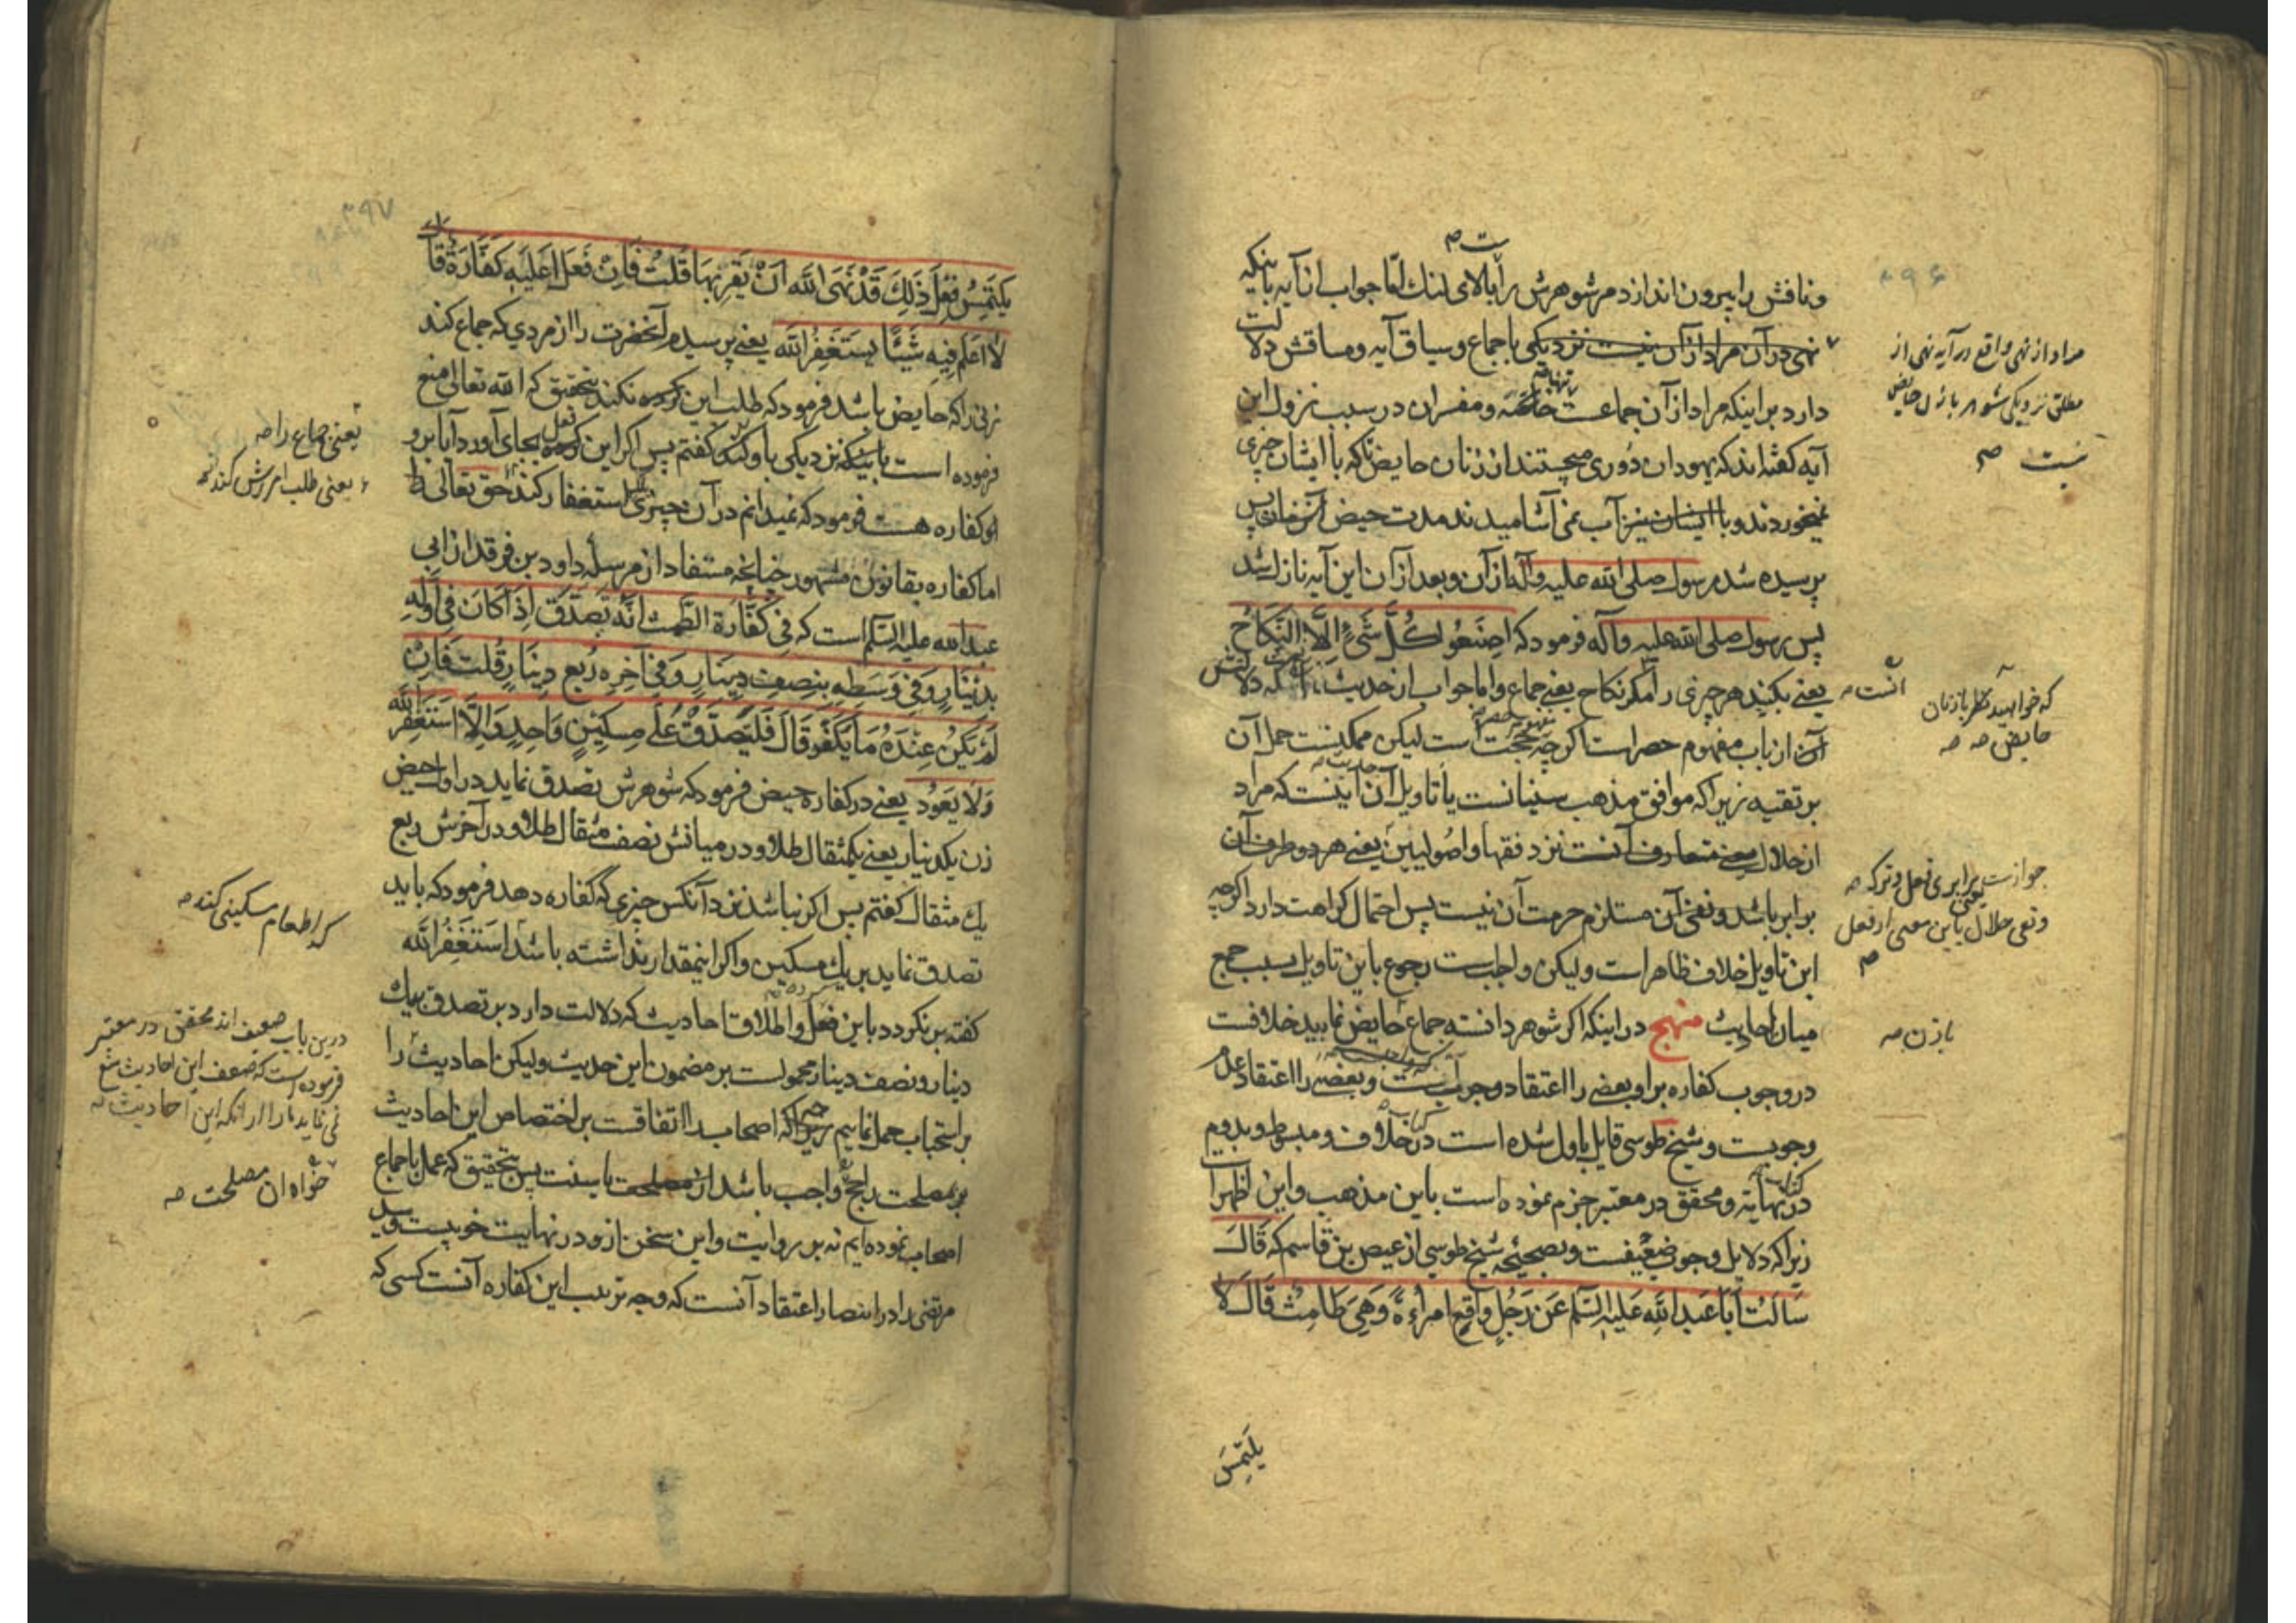 ۸۹۶
و نافش را بیرون اندازد مر شوهرش راست بالای لنک امّا جواب از آیه باینکه
نهی در آن مراد از آن نیست نزدیکی باجماع و سیاق آیه و مساقش دلالت
دارد بر اینکه مراد از آن جماعست و مفسران در سبب نزول این
آیه کفته‌اند که یهودان دوری میجستند از زنان حایض تا که با ایشان چیزی
نمیخوردند و با ایشان نیز آب نمی‌آشامیدند مدت حیض پس
پرسیده شد رسول صلی الله علیه و آله از آن و بعد از آن این آیه نازل شد
پس رسول صلی الله علیه و آله فرمود که اِصْنَعُوا کُلَّ شَیْءٍ اِلاَّ النِّکَاحَ
یعنی بکنید هر چیزی را مکر نکاح یعنی جماع و اما جواب از حدیث که دلالتش
آن از باب مفهوم حصر است اکرچه حجت است لیکن ممکنست حمل آن
بر تقیه زیرا که موافق مذهب سنیانست یا تاویل آن اینست که مراد
از حلال معنی متعارف آنست نزد فقها و اصولیین یعنی هر دو طرف آن
برابر باشد و نفی آن مستلزم حرمت آن نیست پس احتمال کراهت دارد اکرچه
این تاویل خلاف ظاهر است و لیکن واجب است رجوع باین تاویل بسبب جمع
میان احادیث منهج در اینکه اکر شوهر دانسته جماع حایض نماید خلافست
در وجوب کفاره بر او بعضی را اعتقاد وجوب است و بعضی را اعتقاد عدم
وجوبست و شیخ طوسی قایل باول شده است در خلاف و مبسوط و بدویم
در نهایه و محقق در معتبر جزم نموده است باین مذهب و این اظهر است
زیرا که دلایل وجوب ضعیفست و بصحیحه شیخ طوسی از عیص بن قاسم که قَالَ
سَاَلتُ اَبَا عَبدِ اللهِ عَلیهِ السّلَم عَن رَجُلٍ وَاقَعَ امراَةً وَهِیَ طَامِثٌ قَالَ لاَ
یَلتَمِسُ
مراد از نهی واقع در آیه نهی از
مطلق نزدیکی شوهر با زن حایض
نیست
آنست
که خواهید بازنان
حایض
جوازست برابری فعل و ترک
و نفی حلال باین معنی از فعل
بازن
۳۹۷
یَلتَمِسُ فِعلَ ذَلِكَ قَدْ نَهَی اللهُ اَنْ یَقرَبَهَا قُلتُ فَاِنْ فَعَلَ اَعَلَیهِ کَفَّارَةٌ قَالَ
لاَ اَعلَمُ فِیهِ شَیئًا یَستَغفِرُ اللهَ یعنی پرسیدم آنحضرت را از مردی که جماع کند
زنی را که حایض باشد فرمود که طلب این نکند بتحقیق که الله تعالی منع
فرموده است باینکه نزدیکی باو کند کفتم پس اکر این فعل بجای آورد آیا بر
او کفاره هست فرمود که نمیدانم در آن چیزی استغفار کند حق تعالی را
اما کفاره بقانون مشهور چنانچه مستفاد از مرسله داود بن فرقد از ابی
عبد الله علیه السلم است که فِی کَفَّارَةِ الطَّمثِ اَنَّهُ یَتَصَدَّقُ اِذَا کَانَ فِی اَوَّلِهِ
بِدِینَارٍ وَفِی وَسَطِهِ بِنِصفِ دِینَارٍ وَفِی آخِرِهِ رُبعِ دِینَارٍ قُلتُ فَاِنْ
لَمْ یَکُنْ عِندَهُ مَا یُکَفِّرُ قَالَ فَلیَتَصَدَّقْ عَلَی مِسکِینٍ وَاحِدٍ وَاِلاَّ استَغفَرَ اللهَ
وَلاَ یَعُودُ یعنی در کفاره حیض فرمود که شوهرش تصدق نماید در اول حیض
زن یکدینار یعنی یکمثقال طلا و در میانش نصف مثقال طلا و در آخرش ربع
یك مثقال کفتم پس اکر نباشد نزد آنکس چیزی که کفاره دهد فرمود که باید
تصدق نماید بر یك مسکین و اکر اینمقدار نداشته باشد اَستَغفِرُ الله
کفته بر نکردد باین فعل و اطلاق احادیث که دلالت دارد بر تصدق بیك
دینار و نصف دینار محمولست بر مضمون این حدیث و لیکن احادیث را
بر استحباب حمل نمائیم که اصحاب را اتفاقست بر اختصاص این احادیث
بر مصلحت راجح واجب باشد آن مصلحت یا سنت پس بتحقیق که عمل باجماع
اصحاب نموده‌ایم نه بر روایت و این سخن از و در نهایت خوبیست و سید
مرتضی را در انتصار اعتقاد آنست که وجه ترتب این کفاره آنست کسی که
یعنی جماع را
یعنی طلب امرزش کند
که اطعام مسکینی کند
درین باب ضعیف‌اند محقق در معتبر
فرموده است که ضعف این احادیث منع
نمی‌نماید ما را از آنکه این احادیث
خواه آن مصلحت